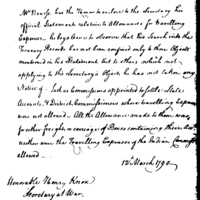 Mr Nourse has the Honor to enclose to the Secretary his
official Statement relative to Allowances for travelling
Expences. he begs leave to observe that his Search into the
Treasury Records has not been confined only to those Objects
mentioned in his Statement but to others which not
applying to the Secretary's Object he has not taken any
Notice of. Such as Commissioners appointed to settle State
Accounts, & District Commissioners where travelling Expences
were not allowed. All the Allowance made to them was
for their freight or carriage of Boxes containing their Acts
neither were the Travelling Expences of the Indian Commissrs
allowed.
12 March 1790
Honorable Henry Knox
Secretary at War.